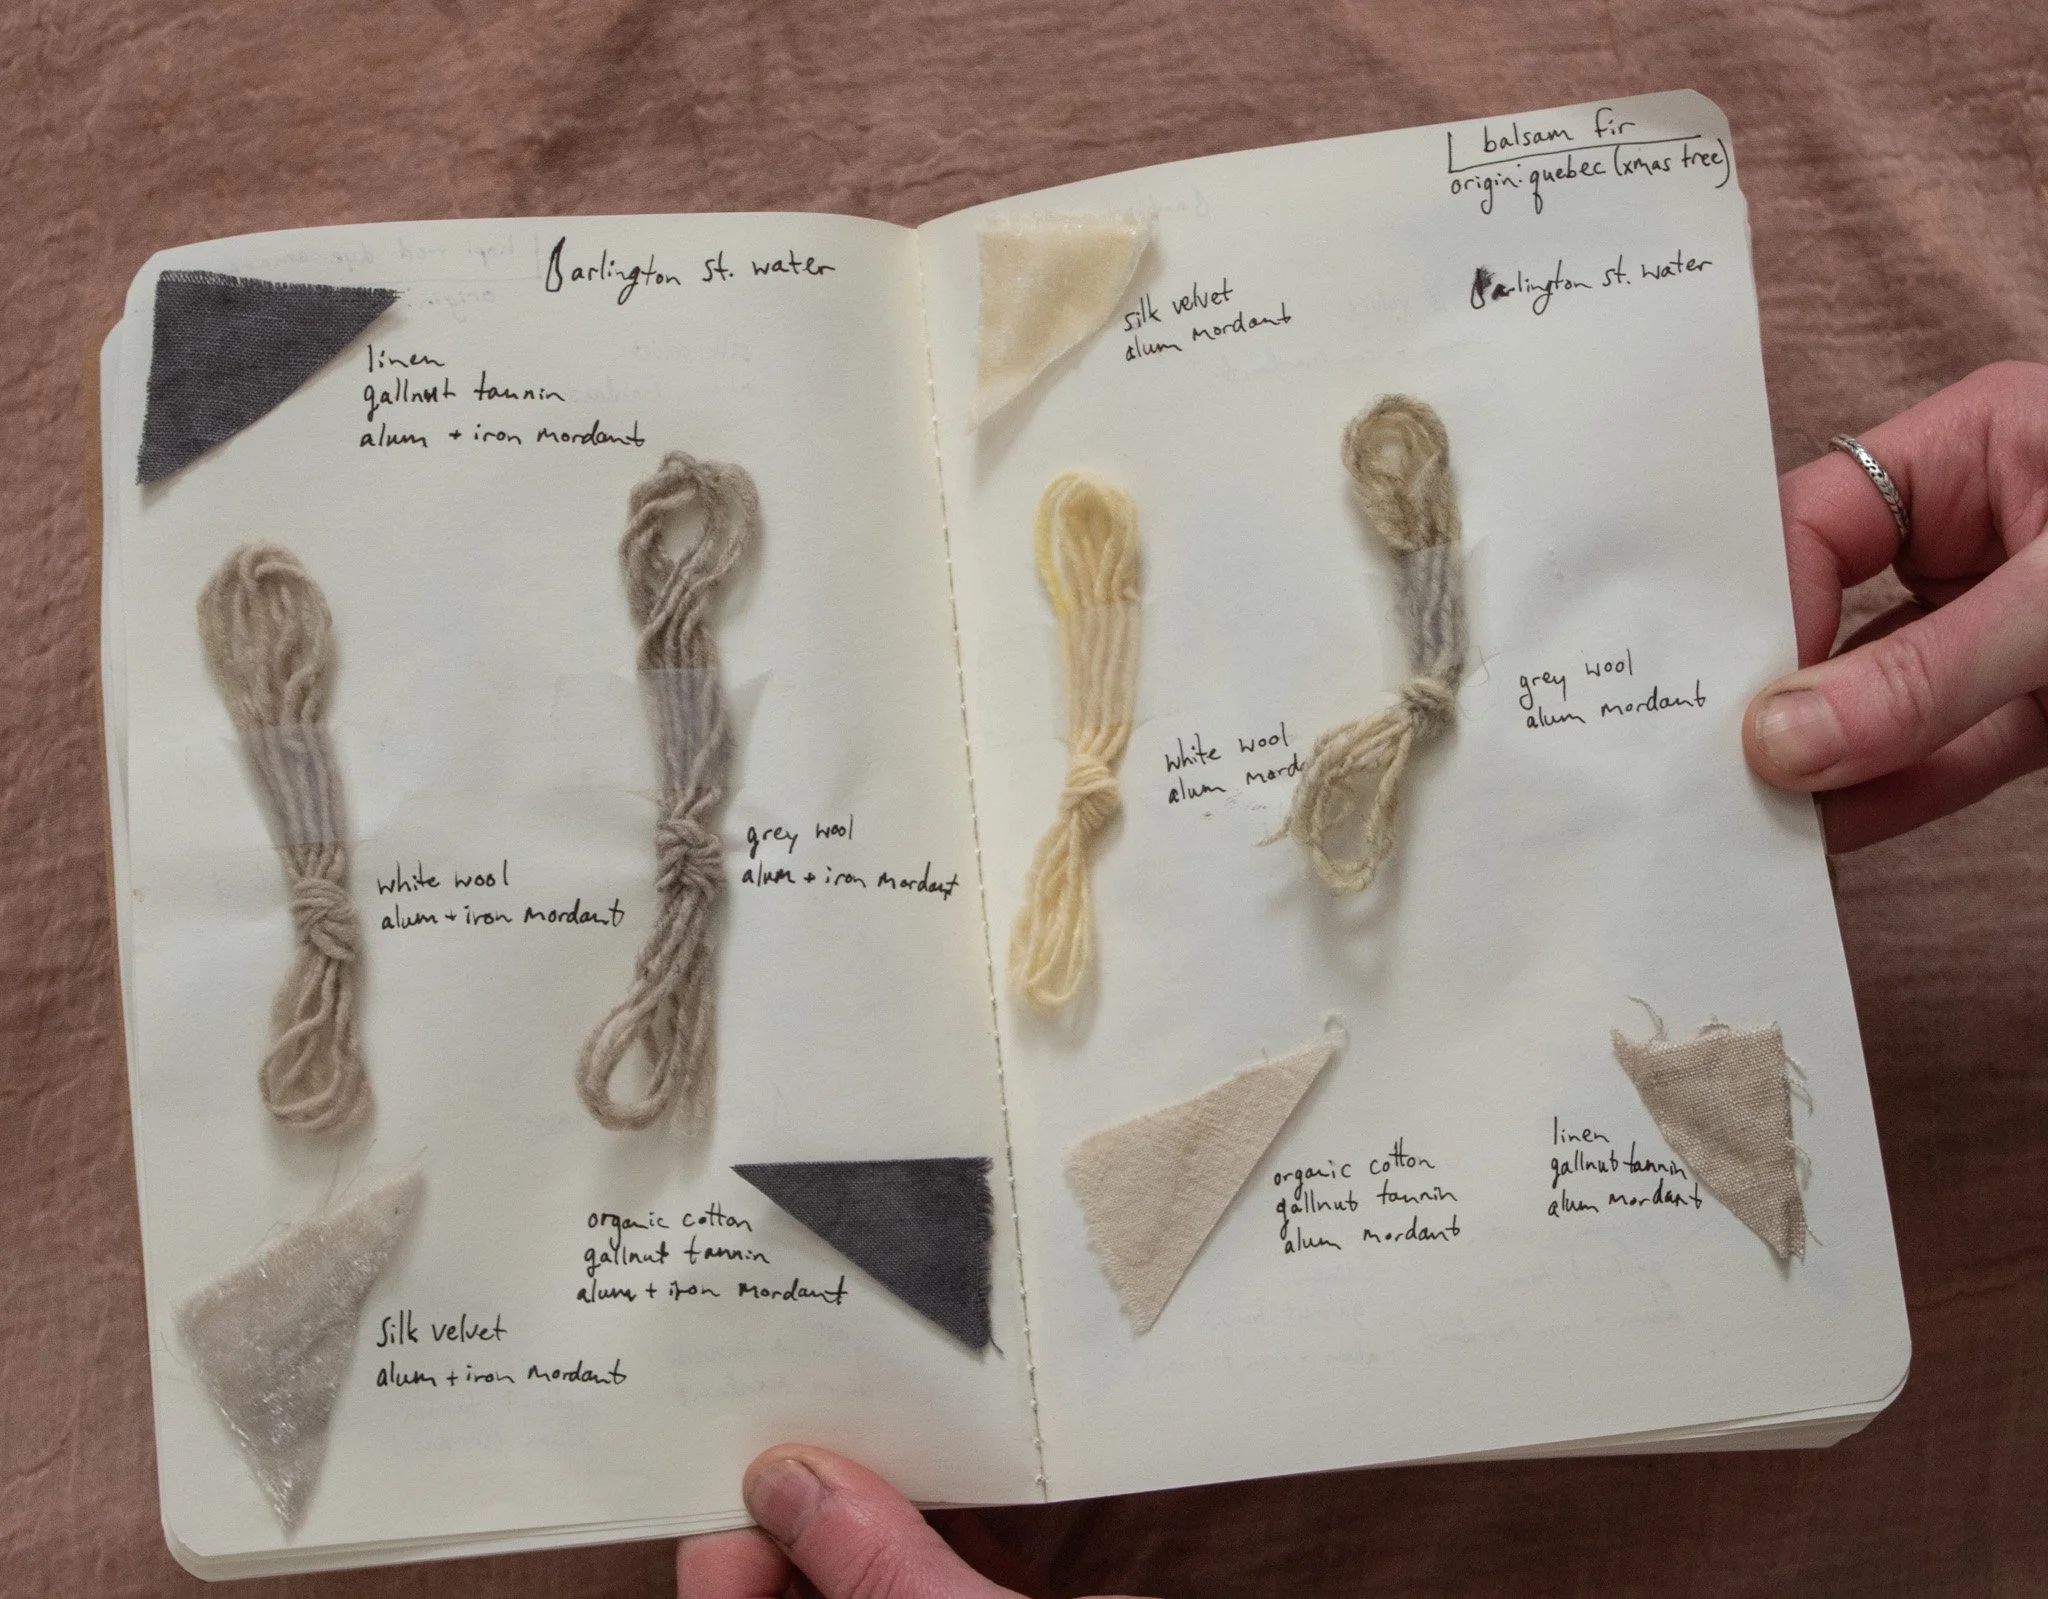 arlington st. water
linen
gallnut tannin
alum + iron mordant
white wool
alum + iron mordant
grey wool
alum + iron mordant
silk velvet
alum + iron mordant
organic cotton
gallnut tannin
alum + iron mordant
balsam fir
origin: quebec (xmas tree)
arlington st. water
silk velvet
alum mordant
white wool
alum mord
grey wool
alum mordant
organic cotton
gallnut tannin
alum mordant
linen
gallnut tannin
alum mordant